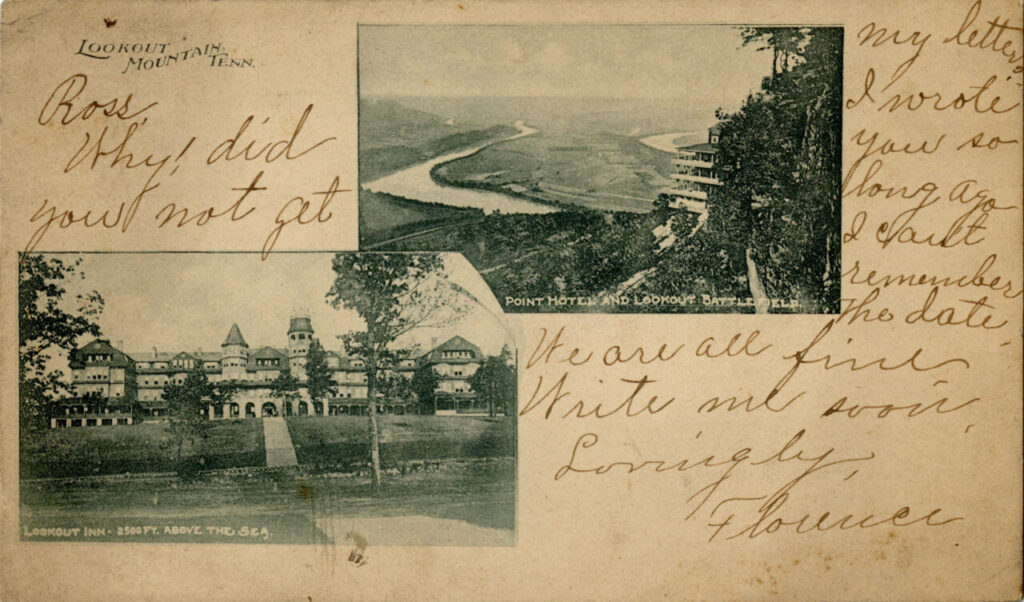 LOOKOUT
MOUNTAIN,
TENN.
Ross,
Why! did
you not get
my letter?
I wrote
you so
long ago
I can't
remember
the date.
We are all fine
Write me soon,
Lovingly,
Florence
POINT HOTEL AND LOOKOUT BATTLEFIELD.
LOOKOUT INN - 2500 FT. ABOVE THE SEA.